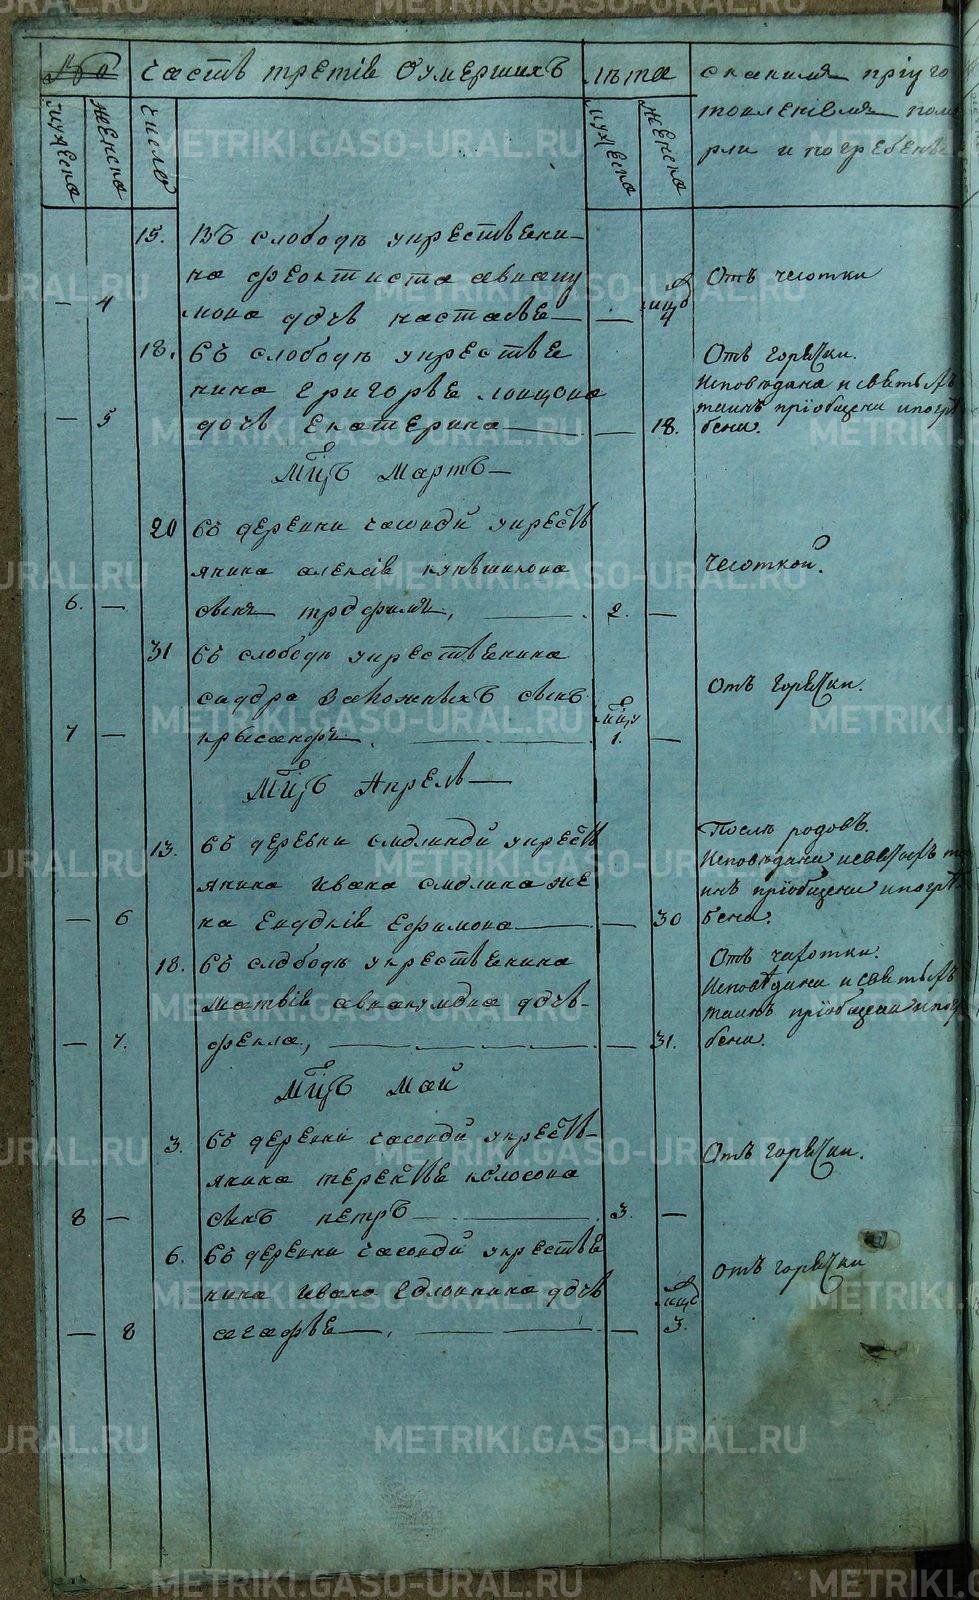 №
Часть третїя Оумершихъ
лѣта
скакимъ прїуго
товленїемъ поме
рли и погребены
мужеска
женска
число
мужеска
женска
15. Въ слободѣ укрестьяни-
на феоктиста авваку
мова дочь настасья — 
— 4
— мцъ 4
Отъ чесотки
18. въ слободѣ укрестья
нина григорья
дочь екатерина —
— 5
— 18.
Отъ горячки.
исповѣдана и святыхъ
таинъ прїобщена и погр
бена.
Мцъ Мартъ —
20 въ деревни укрест
янина алексѣя кукшинова
сынъ трофимъ,
6. —
2. —
Чесоткой.
31 въ слободѣ укрестьянина
сидора заложныхъ сынъ
крысанфъ.
7 —
мцъ 1. —
Отъ горячки.
Мцъ Апрель —
13. въ деревни смолиной укрест
янина ивана смолина же
на Евдокїя Ефимова —
— 6
— 30
Послѣ родовъ.
исповѣдана и святыхъ та
инъ прїобщена и погре
бена.
18. въ слободѣ укрестьянина
матвѣя аввакумова дочь-
фекла,
— 7.
— 31.
Отъ чахотки.
исповѣдана и святыхъ
таинъ прїобщена и погр
бена.
Мцъ Май
3. въ деревни укресть-
янина терентья колосова
сынъ петръ —
8 —
3. —
Отъ горячки.
6. въ деревни укрестья
нина ивана дочь
агафья —
— 8
— мцъ 3.
отъ горячки
METRIKI.GASO-URAL.RU